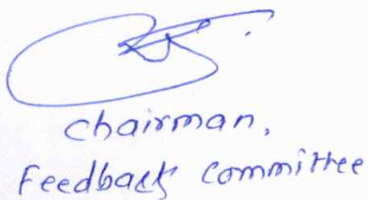 chairman,
Feedback committee